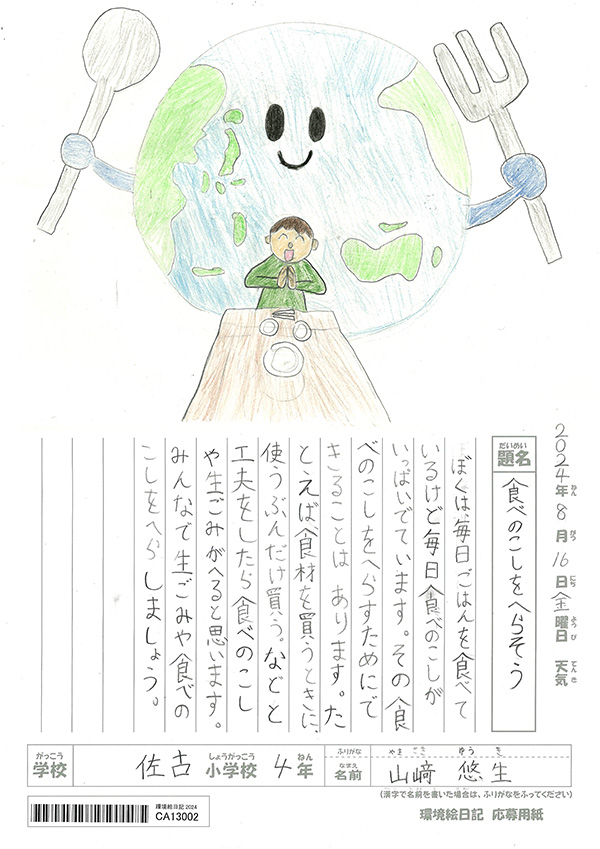 2024年ねん 8 月がつ 16 日にち 金 曜日ようび 天気てんき
題名だいめい 食べのこしをへらそう
ぼくは、毎日ごはんを食べて
いるけど毎日食べのこしが
いっぱいでています。その食
べのこしをへらすためにで
きることは あります。た
とえば食材を買うときに
使うぶんだけ買う。などと
工夫をしたら食べのこし
や生ごみがへると思います。
みんなで生ごみや食べの
こしをへらしましょう。
学校がっこう 佐古 小学校しょうがっこう 4 年ねん
ふりがな やまざき ゆうき
名前なまえ 山﨑 悠生
(漢字で名前を書いた場合は、ふりがなをふってください)
環境絵日記2024
CA13002
環境絵日記 応募用紙